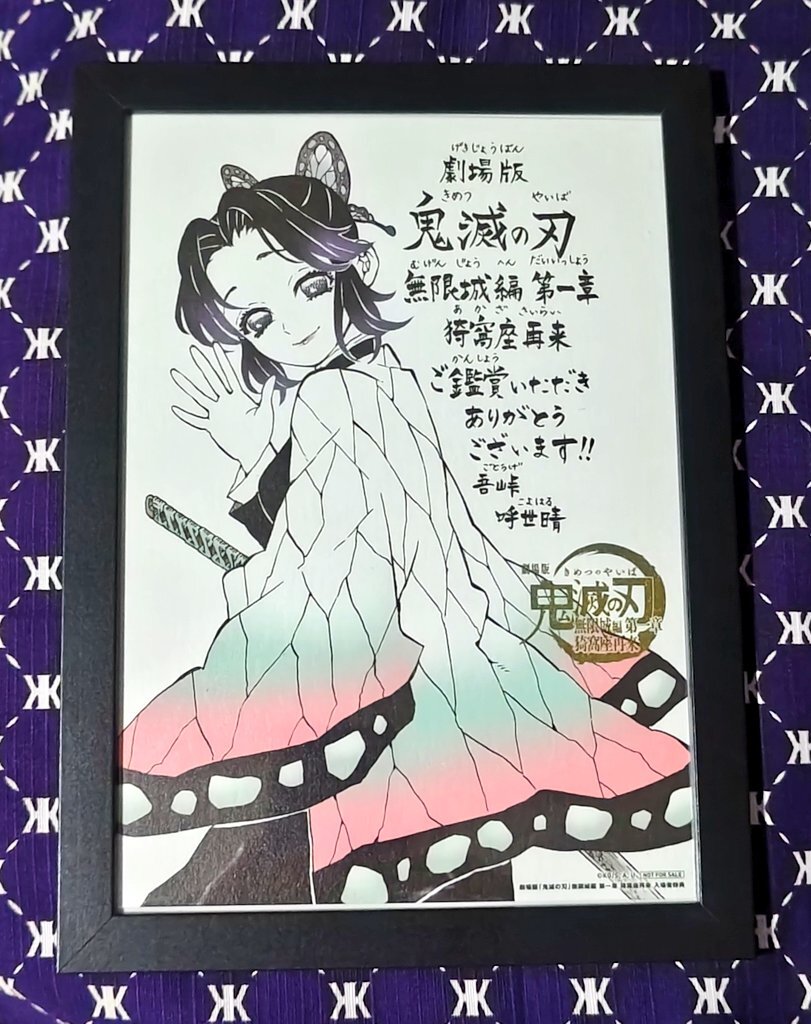 げきじょうばん
劇場版
きめつ やいば
鬼滅の刃
むげんじょうへん だいいっしょう
無限城編 第一章
あかざさいらい
猗窩座再来
かんしょう
ご鑑賞いただき
ありがとう
ございます!!
ごとうげ
吾峠
こよはる
呼世晴
劇場版 きめつのやいば
鬼滅の刃
無限城編 第一章
猗窩座再来
NOT FOR SALE
劇場版「鬼滅の刃」無限城編 第一章 猗窩座再来 入場者特典